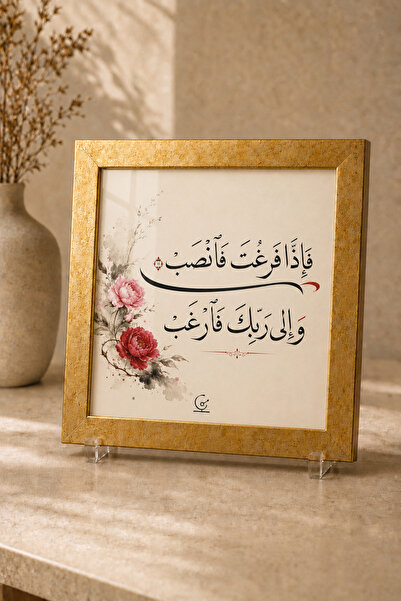 فَإِذَا فَرَغْتَ فَٱنْصَبْ
وَإِلَى رَبِّكَ فَٱرْغَبْ